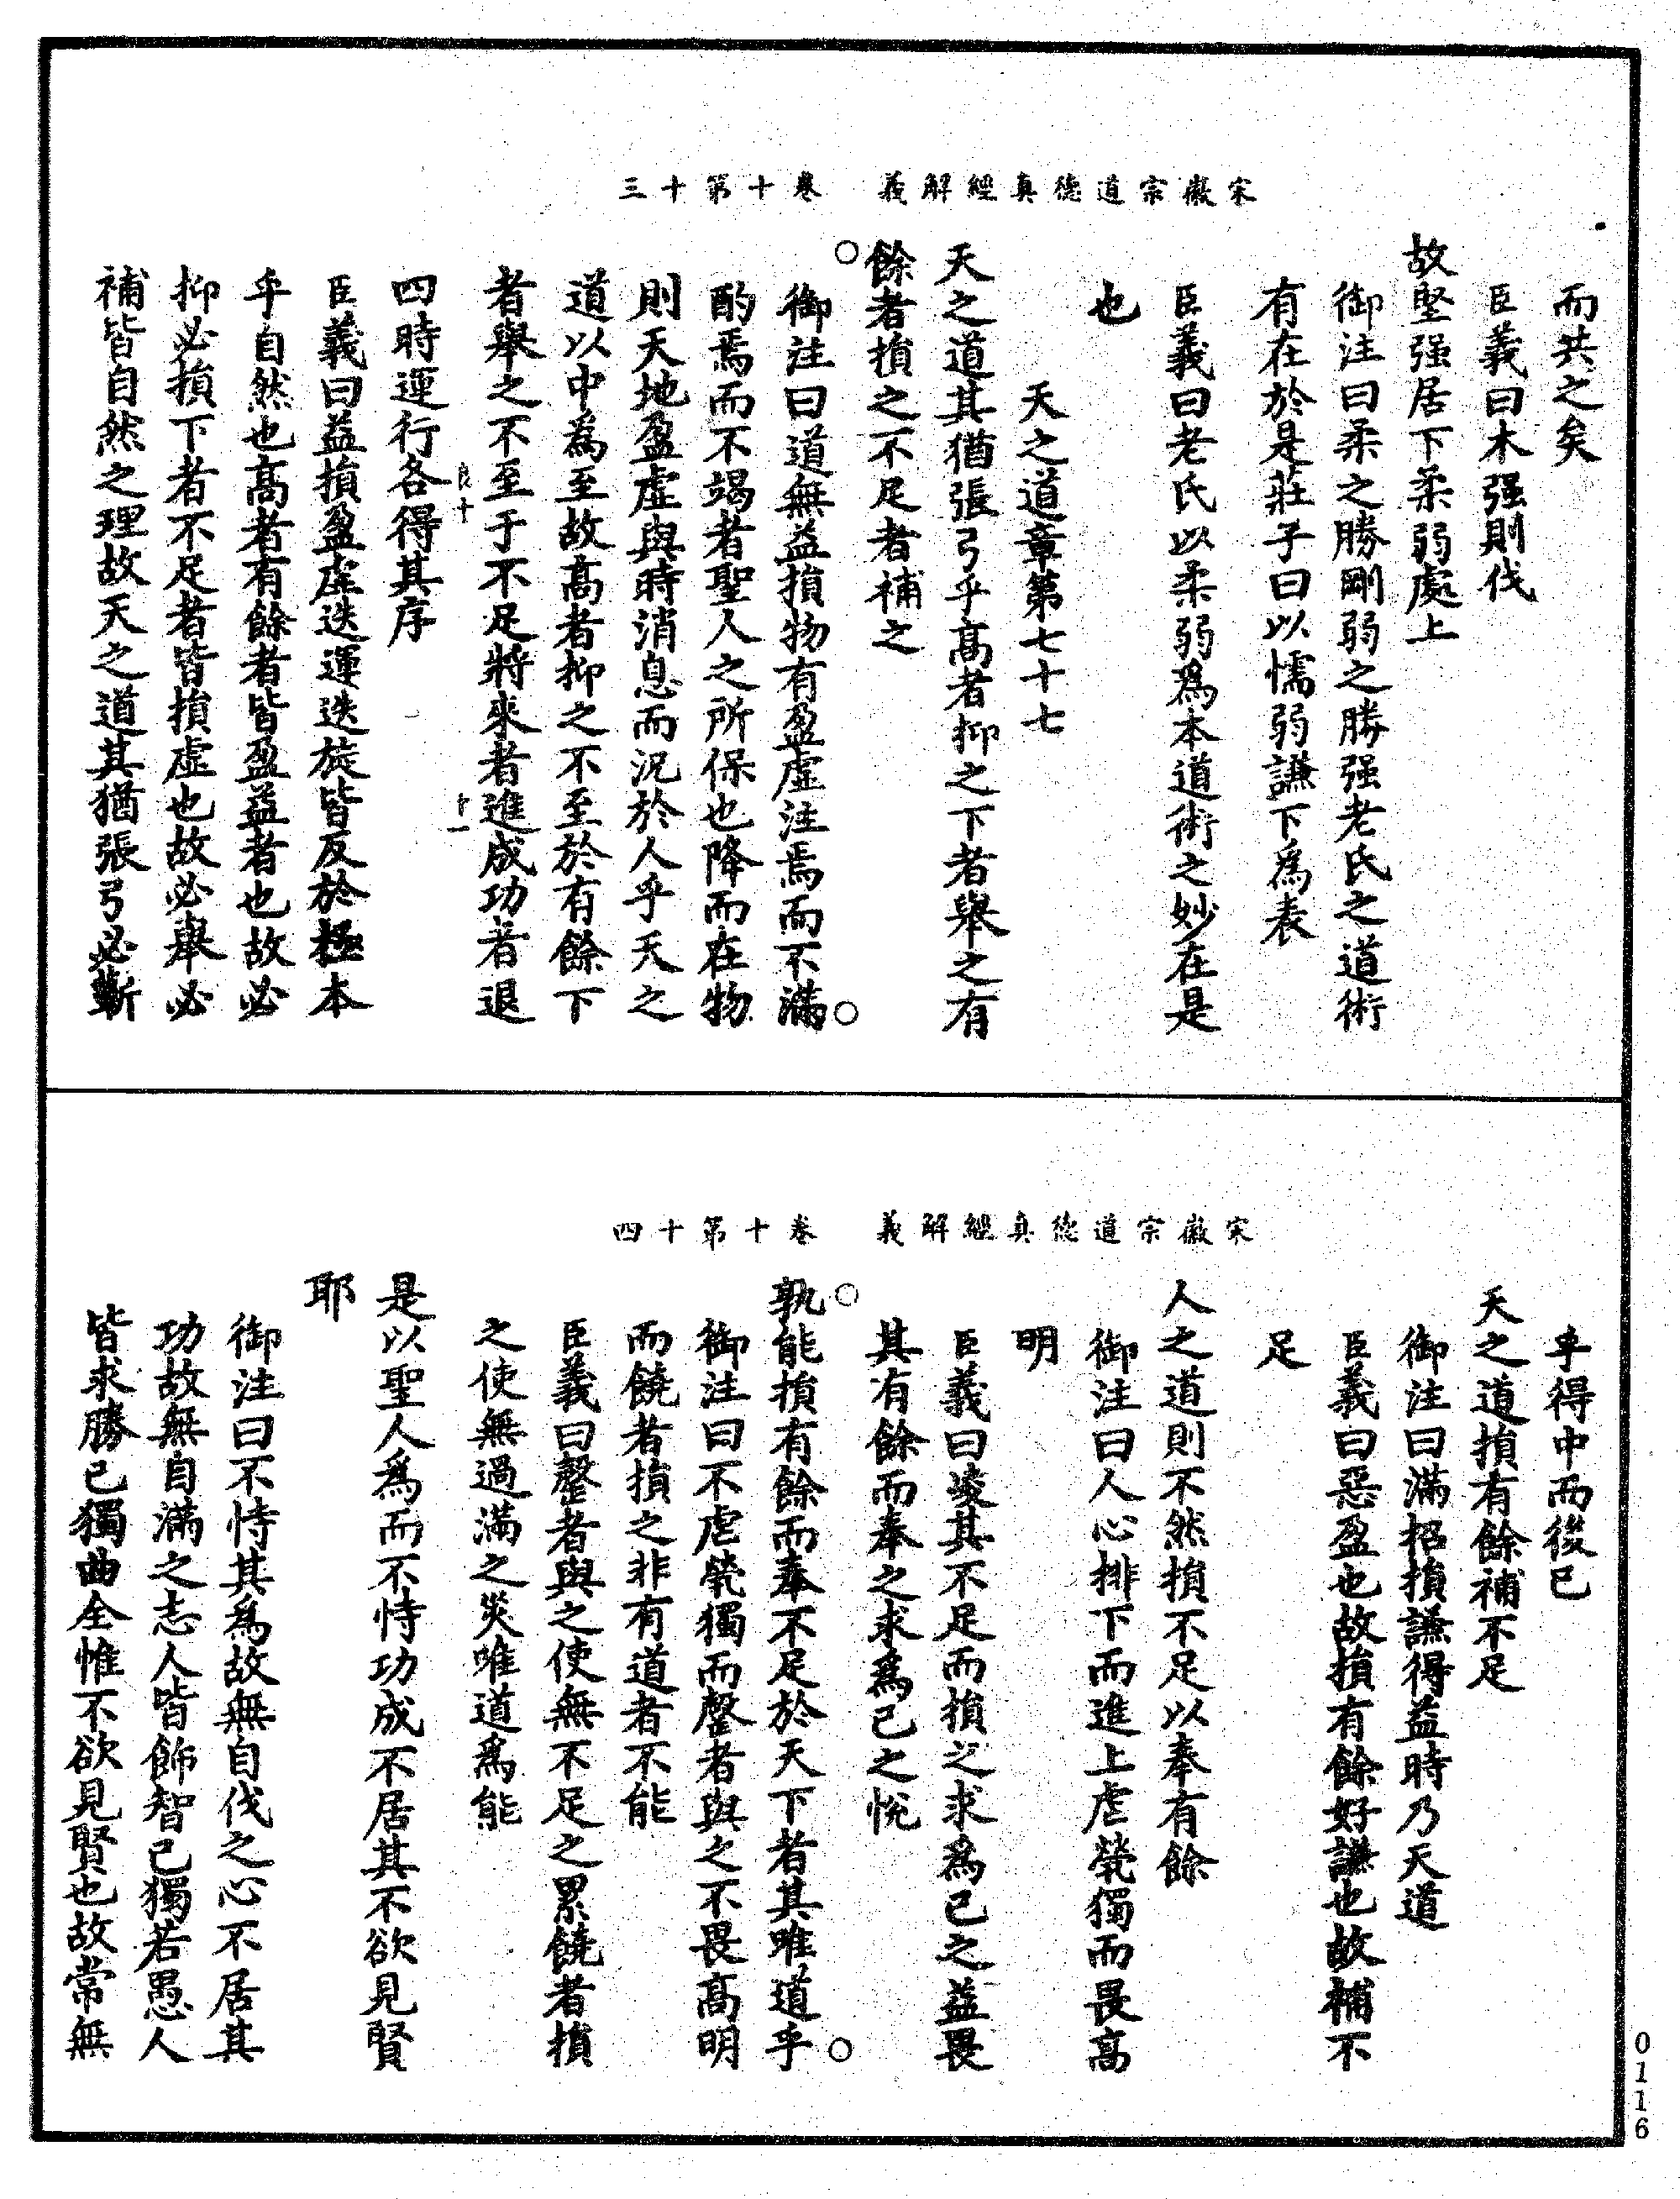 宋徽宗道德真經解義　卷十第十三
而共之矣
臣義曰木强則伐
故堅强居下柔弱處上
御注曰柔之勝剛弱之勝强老氏之道術
有在於是莊子曰以懦弱謙下爲表
臣義曰老氏以柔弱爲本道術之妙在是
也
天之道章第七十七
天之道其猶張弓乎高者抑之下者舉之有
餘者損之不足者補之
御注曰道無益損物有盈虛注焉而不滿
酌焉而不竭者聖人之所保也降而在物
則天地盈虛與時消息而況於人乎天之
道以中為至故高者抑之不至於有餘下
者舉之不至于不足將來者進成功者退
四時運行各得其序
臣義曰益損盈虛迭運迭旋皆反於極本
乎自然也高者有餘者皆盈益者也故必
抑必損下者不足者皆損虛也故必舉必
補皆自然之理故天之道其猶張弓必蘄
宋徽宗道德真經解義　卷十第十四
乎得中而後已
天之道損有餘補不足
御注曰滿招損謙得益時乃天道
臣義曰惡盈也故損有餘好謙也故補不
足
人之道則不然損不足以奉有餘
御注曰人心排下而進上虐煢獨而畏高
明
臣義曰凌其不足而損之求爲己之益畏
其有餘而奉之求爲己之悅
孰能損有餘而奉不足於天下者其唯道乎
御注曰不虐煢獨而罄者與之不畏高明
而饒者損之非有道者不能
臣義曰罄者與之使無不足之累饒者損
之使無過滿之災唯道爲能
是以聖人爲而不恃功成不居其不欲見賢
耶
御注曰不恃其為故無自伐之心不居其
功故無自滿之志人皆飾智己獨若愚人
皆求勝己獨曲全惟不欲見賢也故常無
0116